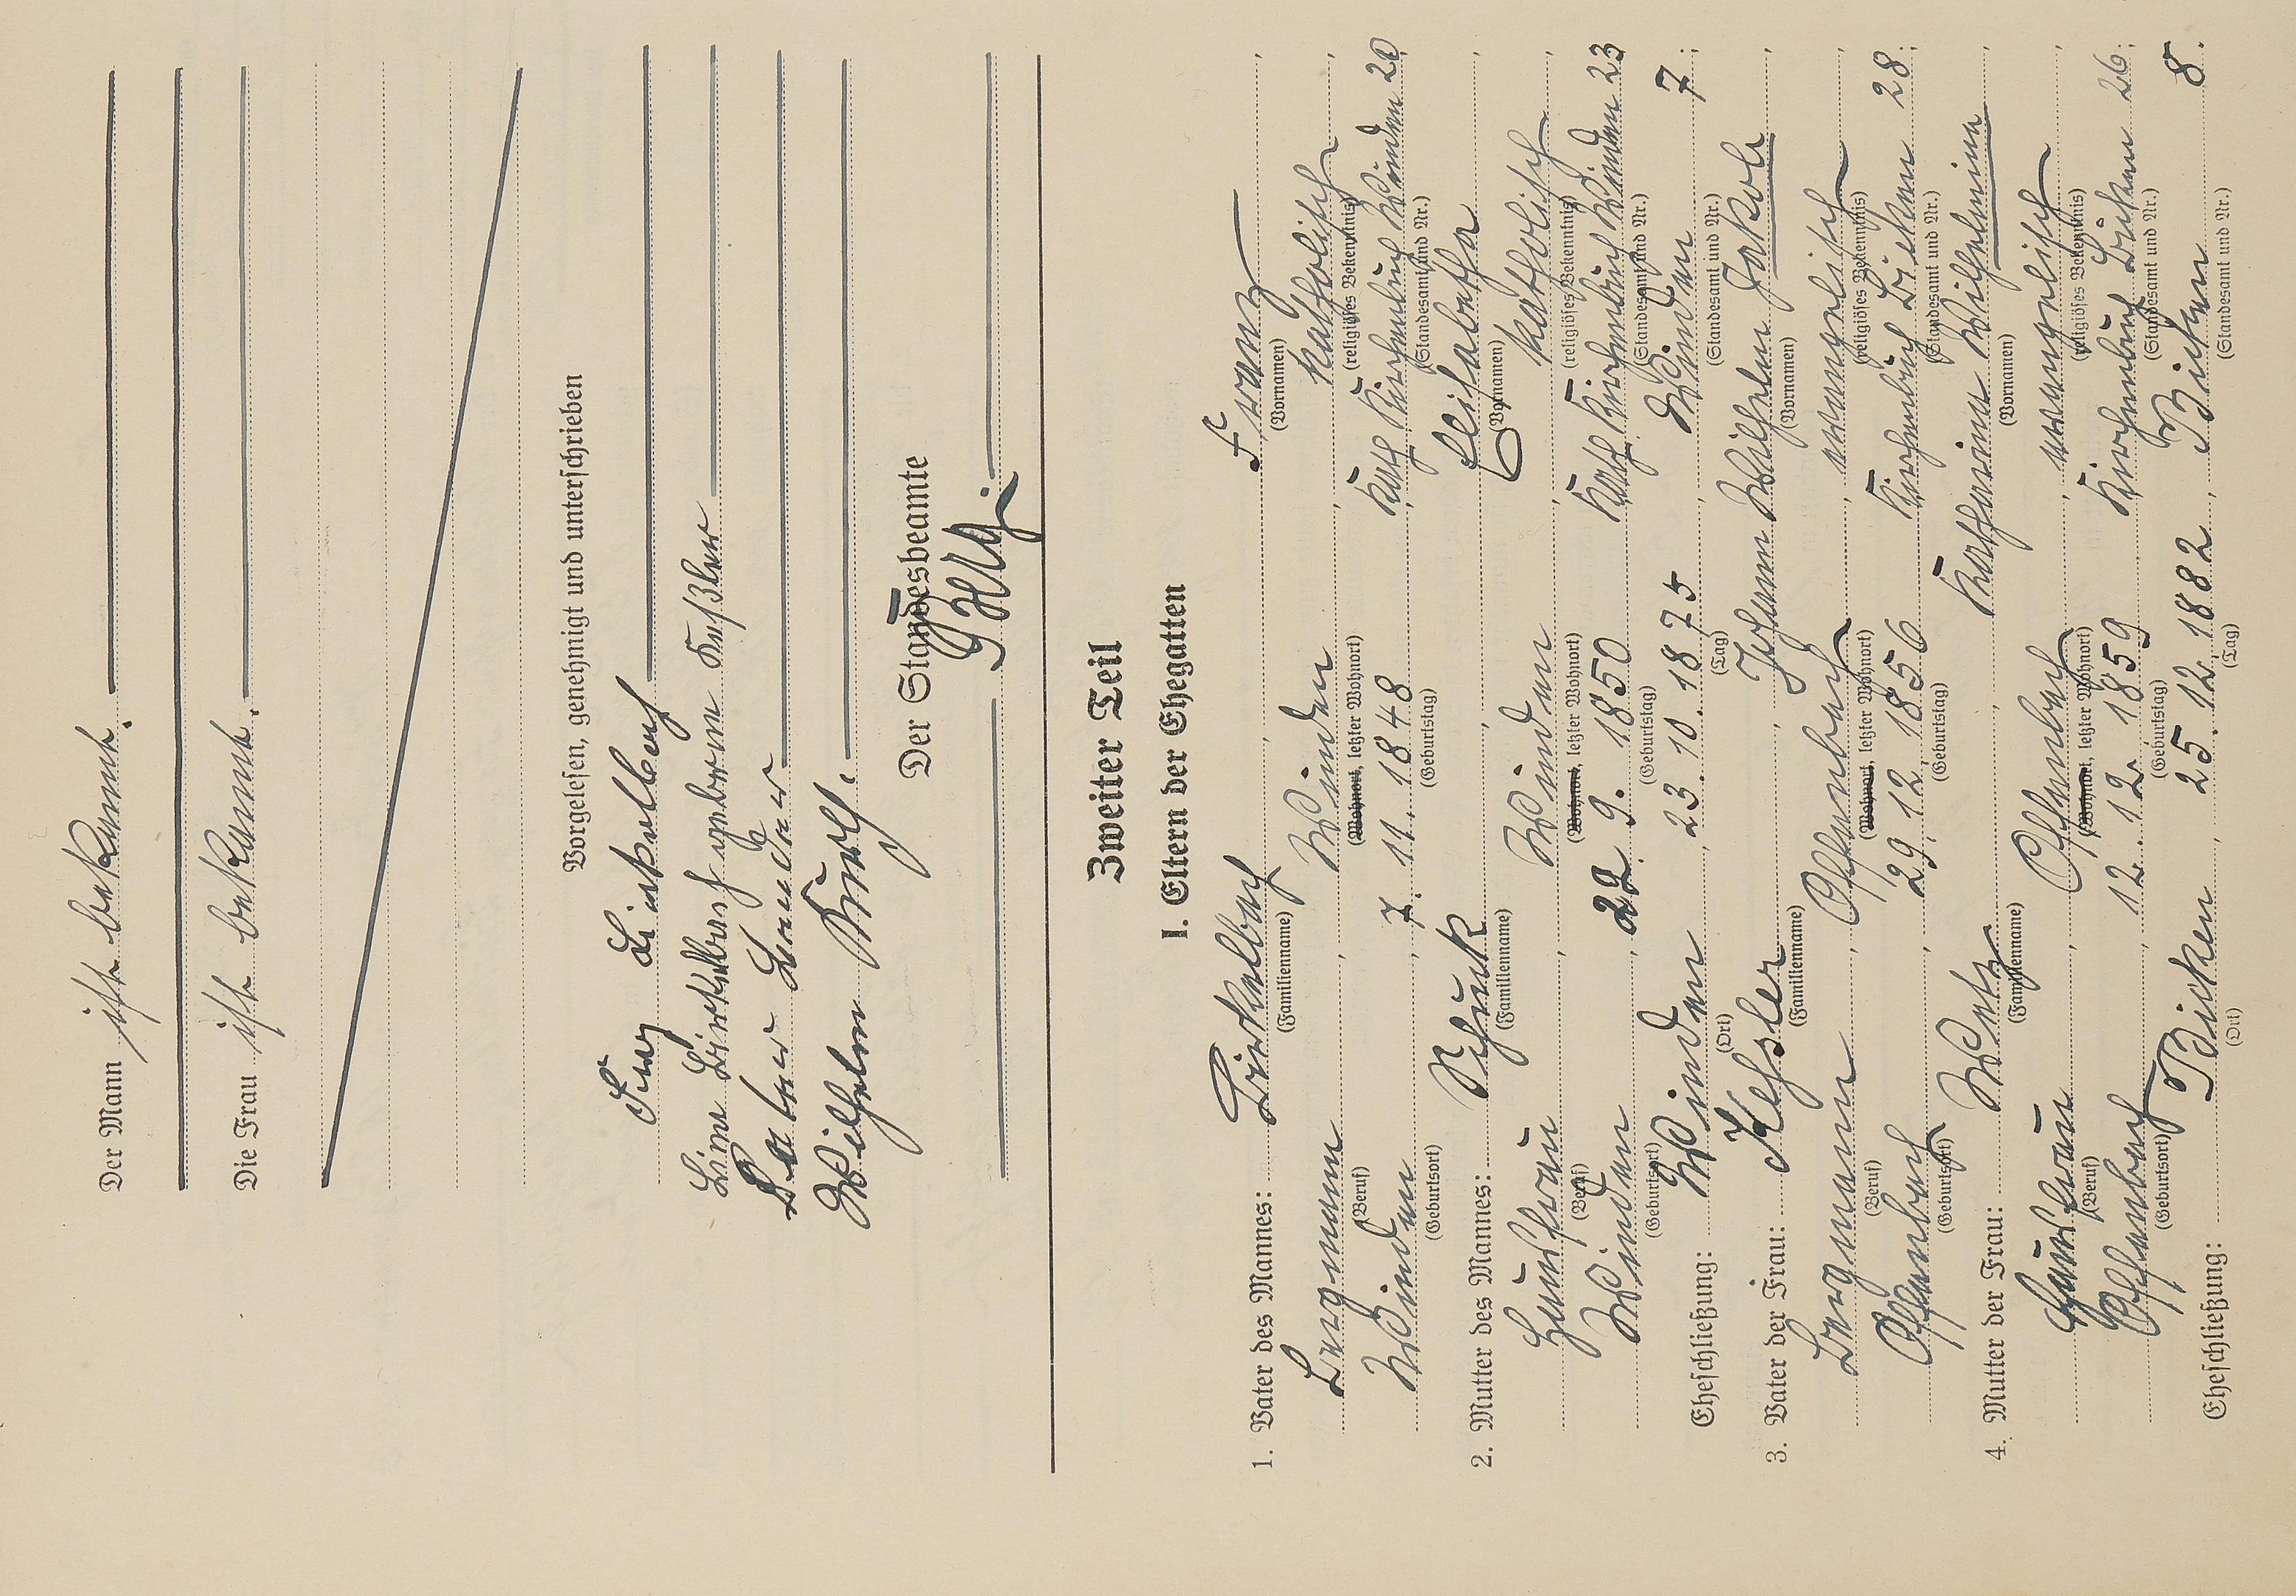 Der Mann ist bekannt.
Die Frau ist bekannt.
Vorgelesen, genehmigt und unterschrieben
Birkelbach
Birkelbach geborene Keßler
Wilhelm
Der Standesbeamte
Zweiter Teil
I. Eltern der Ehegatten
1. Vater des Mannes: Birkelbach, Franz
(Familienname) (Vornamen)
Bergmann, Winden, katholisch
(Beruf) (Wohnort, letzter Wohnort) (religiöses Bekenntnis)
Winden, 7. 11. 1848, Kath. Kirchenbuch Winden 20;
(Geburtsort) (Geburtstag) (Standesamt und Nr.)
2. Mutter des Mannes: Schunk, Elisabetha,
(Familienname) (Vornamen)
Hausfrau, Winden, katholisch,
(Beruf) (Wohnort, letzter Wohnort) (religiöses Bekenntnis)
Winden, 22. 9. 1850, Kath. Kirchenbuch Winden 23
(Geburtsort) (Geburtstag) (Standesamt und Nr.)
Eheschließung: Winden, 23. 10. 1875, Winden 7.;
(Ort) (Tag) (Standesamt und Nr.)
3. Vater der Frau: Keßler, Johann Wilhelm Jakob,
(Familienname) (Vornamen)
Bergmann, Offenbach, evangelisch,
(Beruf) (Wohnort, letzter Wohnort) (religiöses Bekenntnis)
Offenbach, 29. 12. 1856, Kirchenbuch Bicken 28.;
(Geburtsort) (Geburtstag) (Standesamt und Nr.)
4. Mutter der Frau: Metz, Katharina Wilhelmine,
(Familienname) (Vornamen)
Hausfrau, Offenbach, evangelisch,
(Beruf) (Wohnort, letzter Wohnort) (religiöses Bekenntnis)
Offenbach, 12. 12. 1859, Kirchenbuch Bicken 26.;
(Geburtsort) (Geburtstag) (Standesamt und Nr.)
Eheschließung: Bicken, 25. 12. 1882, Bicken 8.
(Ort) (Tag) (Standesamt und Nr.)